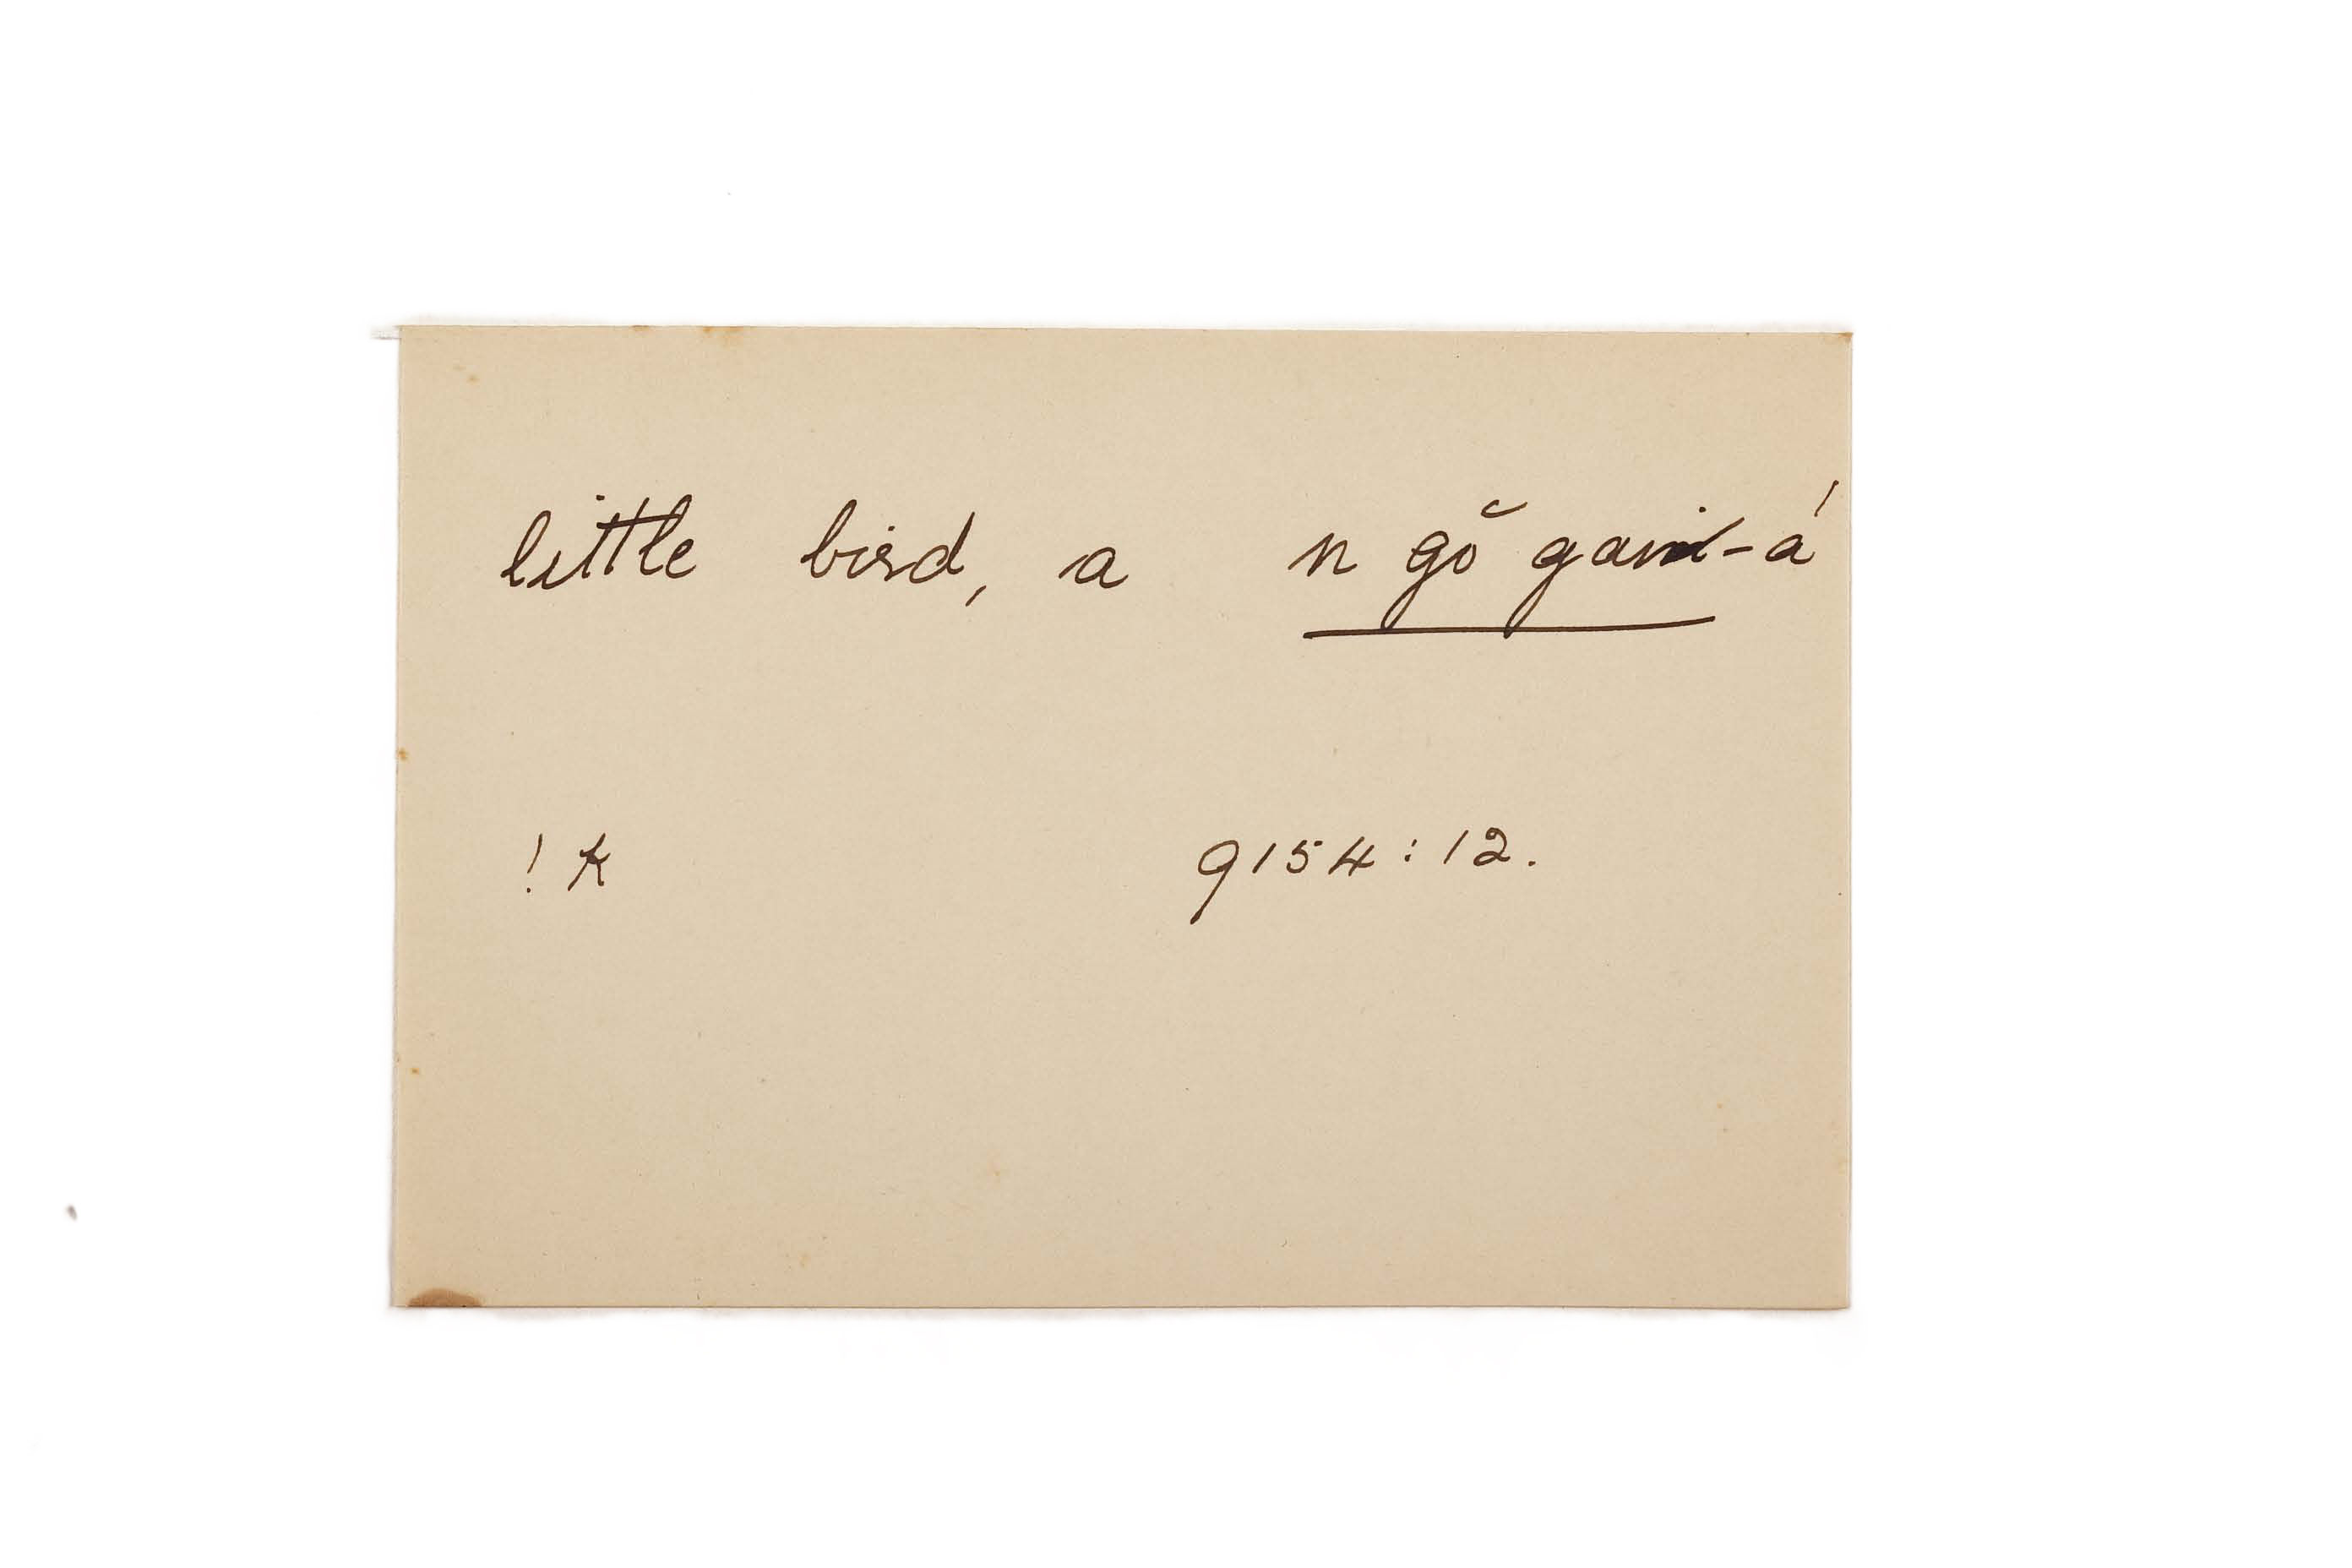 little bird, a n gŏ garil-á
! k 9154 : 12.